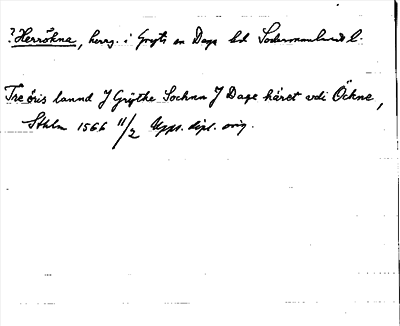 ? Herrökna, herrg. i Gryts sn Daga hd Södermanlands l.
Tre öris lannd J Grythe Sochnn J Dage häret vdi Öckne,
Sthlm 1566 11/2 Upps. dipl. orig.